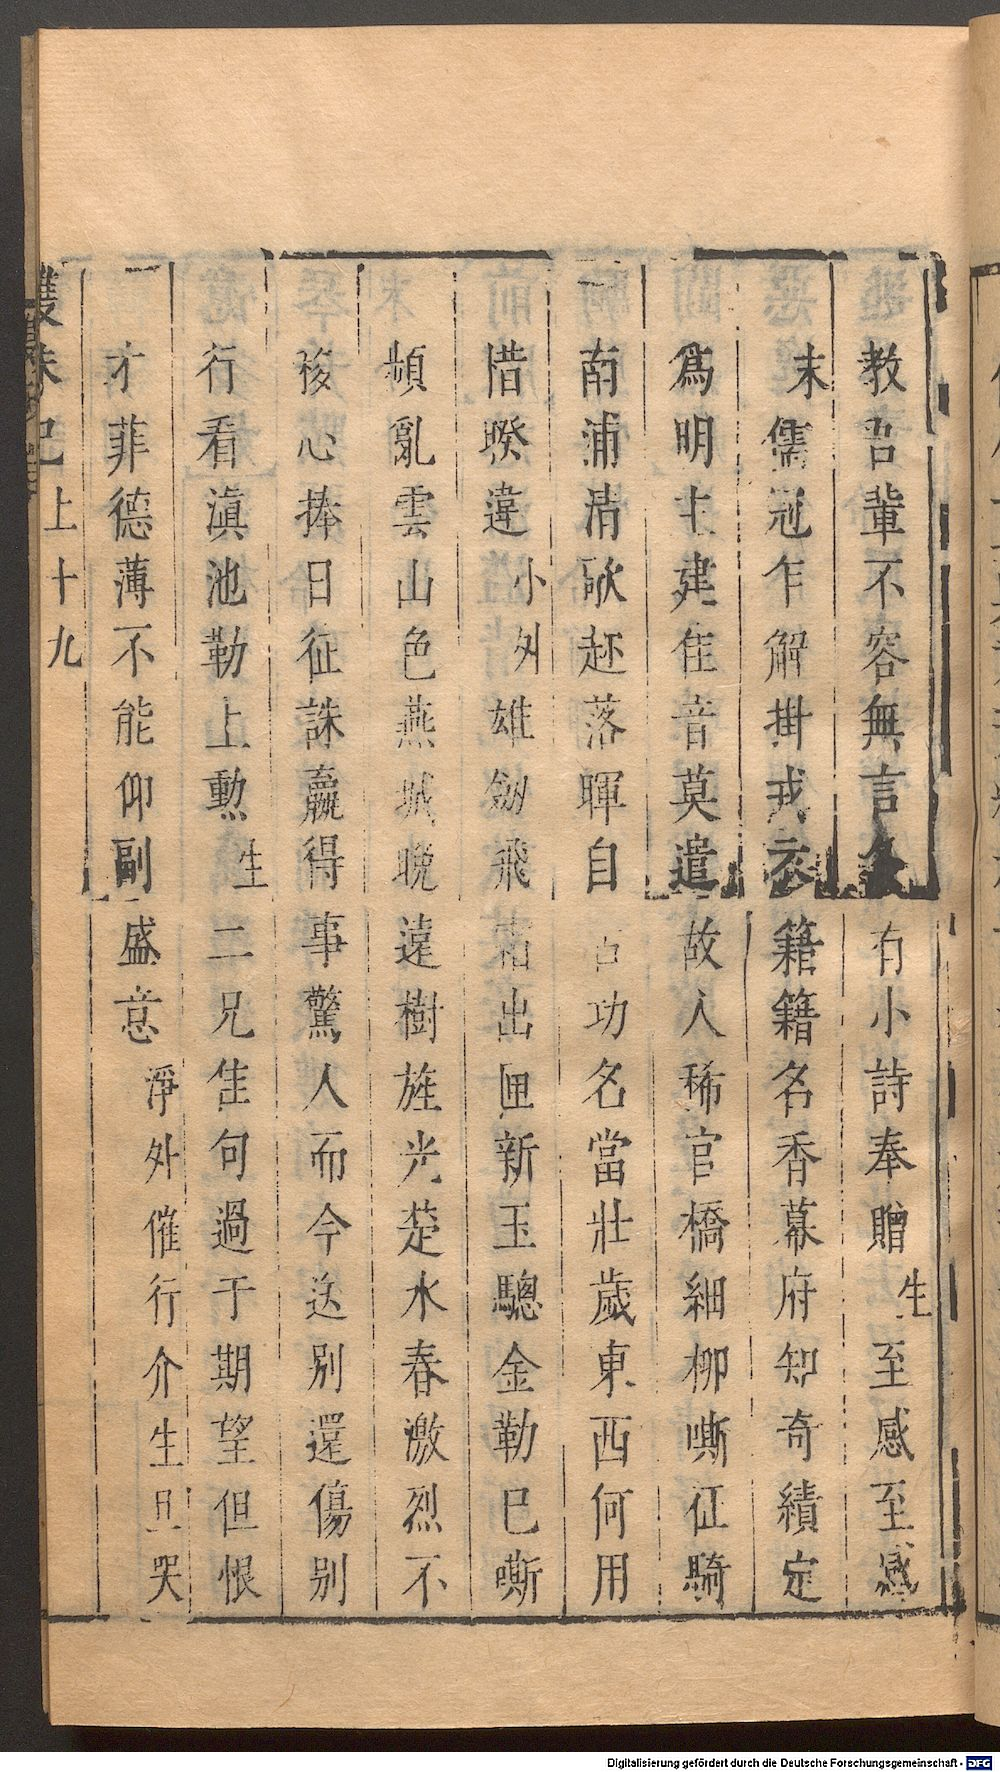 教吾輩不容無言念有小詩奉贈生至感至感
末儒冠乍解掛戎衣籍籍名香幕府知奇績定
爲明主建佳音莫遣故人稀官橋細柳嘶征騎
南浦清歌趂落暉自古功名當壯歲東西何用
惜暌違小外雄劍飛霜出匣新玉驄金勒已嘶
頻亂雲山色燕城晚遠樹旌光楚水春激烈不
移心捧日征誅贏得事驚人而今送別還傷別
行看滇池勒上勲生二兄佳句過于期望但恨
才菲德薄不能仰副盛意淨外催行介生旦哭
雙珠記上十九
Digitalisierung gefördert durch die Deutsche Forschungsgemeinschaft - DFG